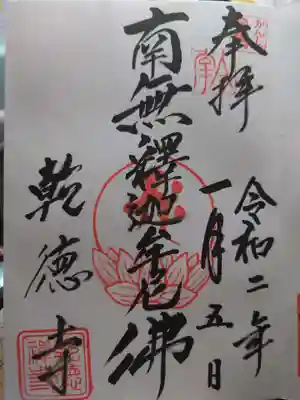 奉拝
令和二年
一月五日
南無釋迦牟尼佛
乾徳寺